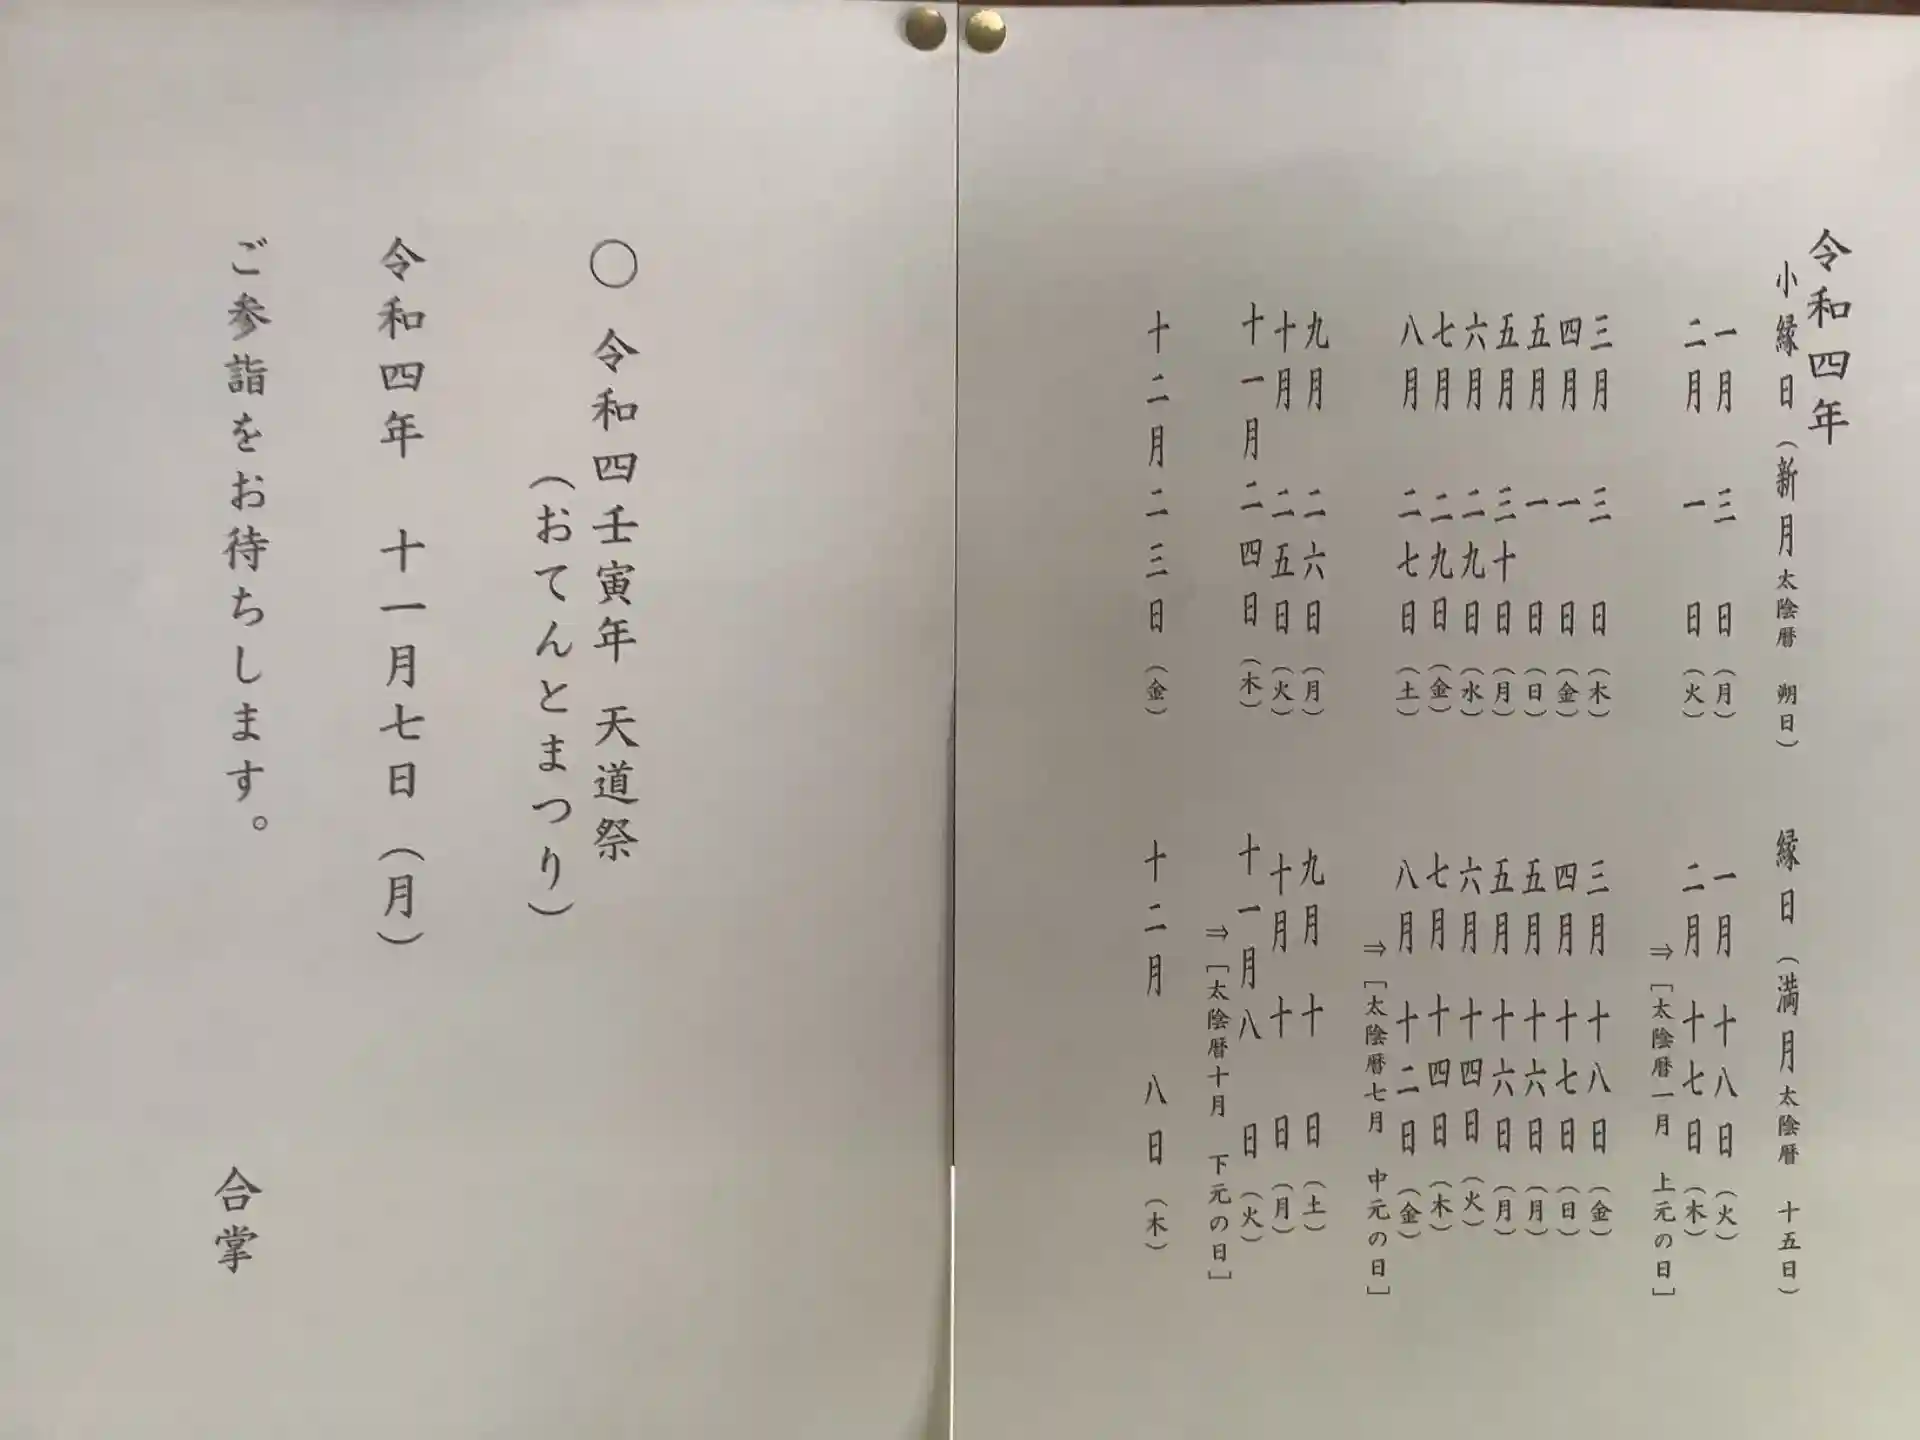 令和四年
小縁日（新月太陰暦　朔日）　縁日（満月太陰暦　十五日）
一月　三　日（月）　一月　十八日（火）
二月　一　日（火）　二月　十七日（木）
⇒［太陰暦一月　上元の日］
三月　三　日（木）　三月　十八日（金）
四月　一　日（金）　四月　十七日（日）
五月　一　日（日）　五月　十六日（月）
五月　三十日（月）　五月　十六日（月）
六月　二九日（水）　六月　十四日（火）
七月　二九日（金）　七月　十四日（木）
八月　二七日（土）　八月　十二日（金）
⇒［太陰暦七月　中元の日］
九月　二六日（月）　九月　十　日（土）
十月　二五日（火）　十月　十　日（月）
十一月　二四日（木）　十一月　八　日（火）
⇒［太陰暦十月　下元の日］
十二月　二三日（金）　十二月　八日（木）
○　令和四壬寅年　天道祭
（おてんとまつり）
令和四年　十一月七日（月）
ご参詣をお待ちします。
合掌